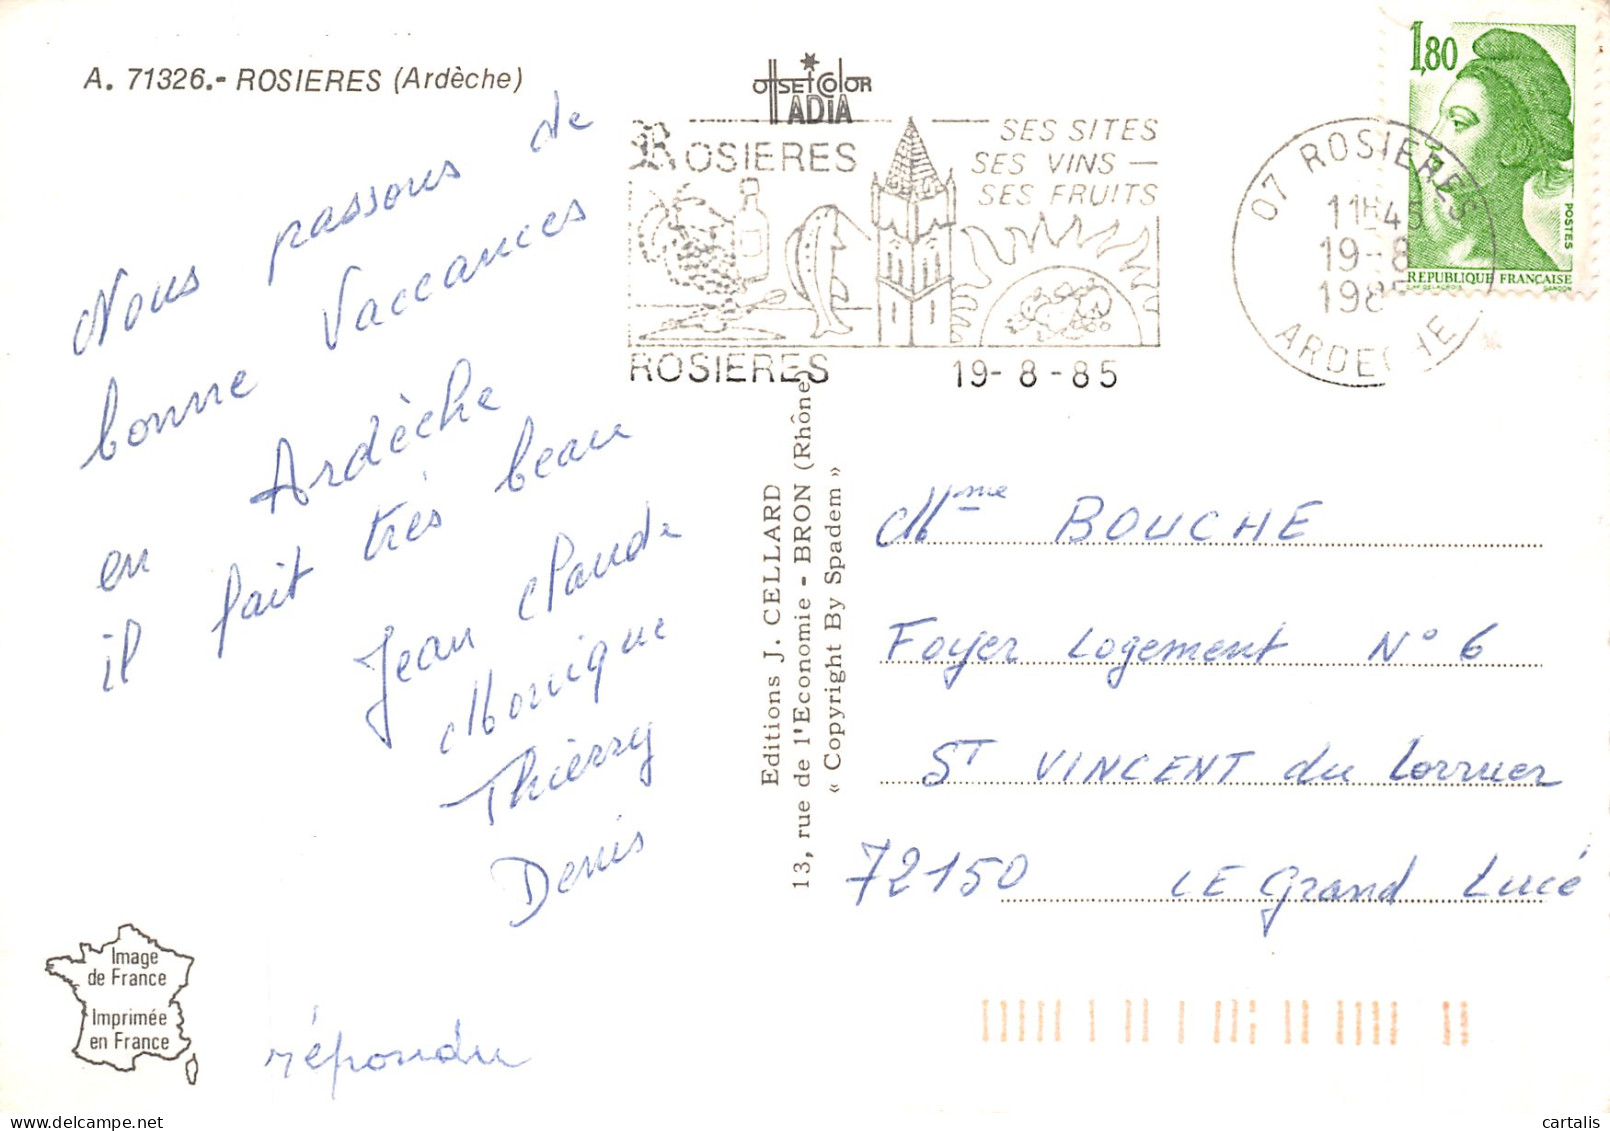 A. 71326.- ROSIERES (Ardèche)
Nous passons de
bonne Vaccances
en Ardèche
il fait très beau
Jean Claude
Monique
Thierry
Denis
répondu
Image
de France
Imprimée
en France
OffSET COLOR
ADIA
ROSIERES
SES SITES
SES VINS —
SES FRUITS
ROSIERES 19-8-85
07 ROSIERES
11H45
19-8
198
ARDECHE
1,80
POSTES
REPUBLIQUE FRANÇAISE
Editions J. CELLARD
13, rue de l'Economie - BRON (Rhône)
« Copyright By Spadem »
Mme BOUCHE
Foyer Logement N° 6
ST VINCENT du Lorruer
72150 LE Grand Lucé
cartalis
delcampe.net